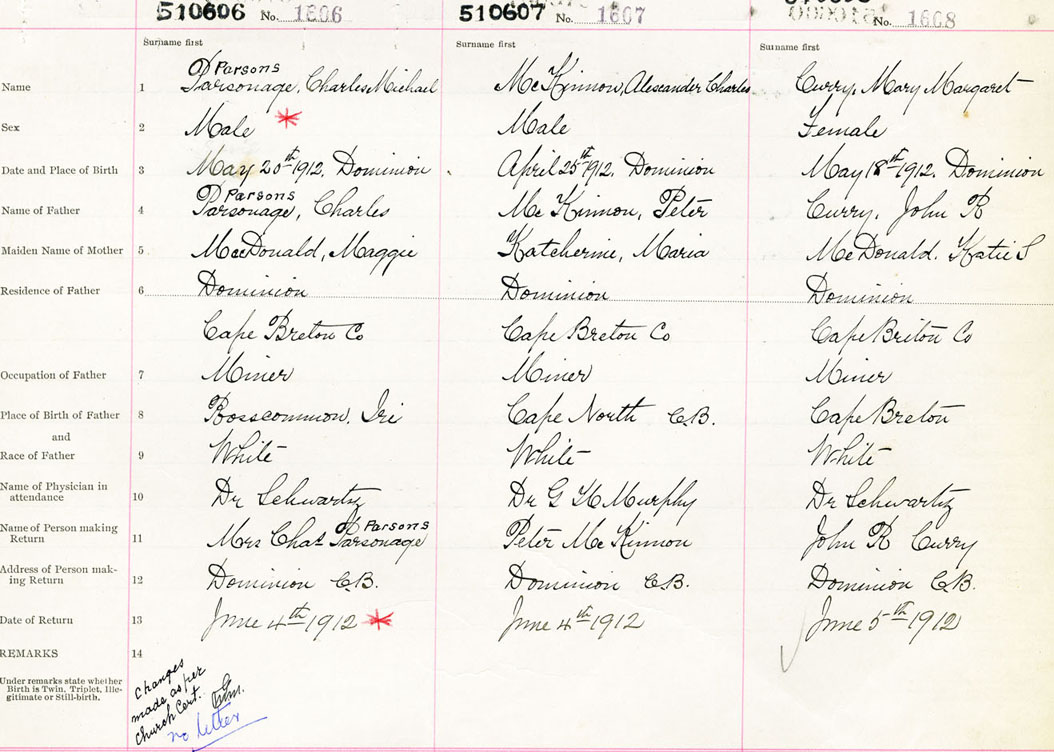 510606 No. 1606 510607 No. 1607 No. 1608
Surname first Surname first Surname first
Parsons
Name 1 Parsonage, Charles Michael McKinnon, Alexander Charles Curry, Mary Margaret
Sex 2 Male * Male Female
Date and Place of Birth 3 May 20th 1912, Dominion April 25th 1912, Dominion May 18th 1912, Dominion
Parsons
Name of Father 4 Parsonage, Charles Mc Kinnon, Peter Curry, John R
Maiden Name of Mother 5 MacDonald, Maggie Katcherine, Maria McDonald, Katie S
Residence of Father 6 Dominion Dominion Dominion
Cape Breton Co Cape Breton Co Cape Briton Co
Occupation of Father 7 Miner Miner Miner
Place of Birth of Father 8 Rosscommon, Ire Cape North C.B. Cape Breton
and
Race of Father 9 White White White
Name of Physician in
attendance 10 Dr Schwartz Dr G H Murphy Dr Schwartz
Parsons
Name of Person making
Return 11 Mrs Chas Parsonage Peter Mc Kinnon John R Curry
Address of Person mak-
ing Return 12 Dominion C.B. Dominion C.B. Dominion C.B.
Date of Return 13 June 4th 1912 * June 4th 1912 June 5th 1912
REMARKS 14
Under remarks state whether
Birth is Twin, Triplet, Ille-
gitimate or Still-birth.
changes
made as per
church cert.
no letter